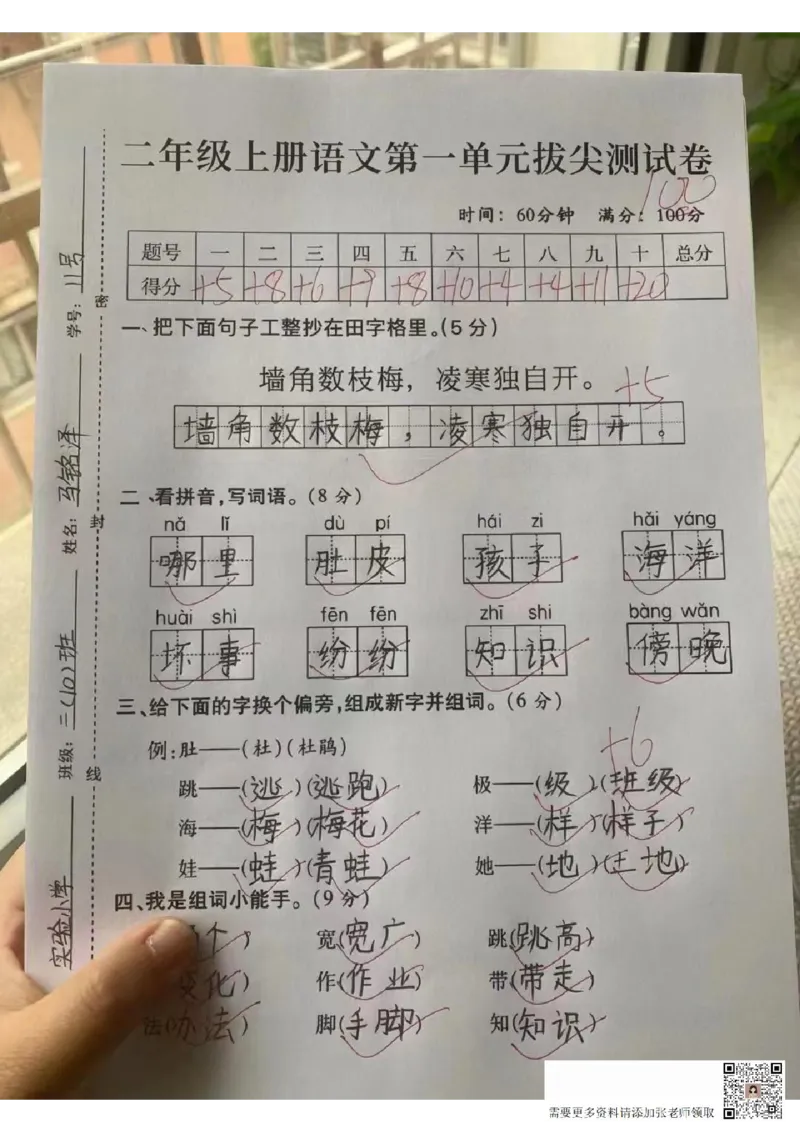 二年级上册语文第一单元拔尖测试卷
100
时间：60分钟 满分：100分
题号 一 二 三 四 五 六 七 八 九 十 总分
得分 +5 +8 +6 +9 +8 +10 +4 +4 +11 +20
一、把下面句子工整抄在田字格里。(5分)
墙角数枝梅，凌寒独自开。 +5
墙角数枝梅，凌寒独自开。
二、看拼音，写词语。(8分)
nǎ lǐ dù pí hái zi hǎi yáng
哪里 肚皮 孩子 海洋
huài shì fēn fēn zhī shi bàng wǎn
坏事 纷纷 知识 傍晚
三、给下面的字换个偏旁，组成新字并组词。(6分)
例：肚——(杜)(杜鹃) +6
跳——(逃)(逃跑) 极——(级)(班级)
海——(梅)(梅花) 洋——(样)(样子)
娃——(蛙)(青蛙) 她——(地)(土地)
四、我是组词小能手。(9分)
个) 宽(宽广) 跳(跳高)
变化) 作(作业) 带(带走)
法(办法) 脚(手脚) 知(知识)
实验小学 班级：二(10)班 姓名：马铭泽 学号：11号
密 封 线
需要更多资料请添加张老师领取